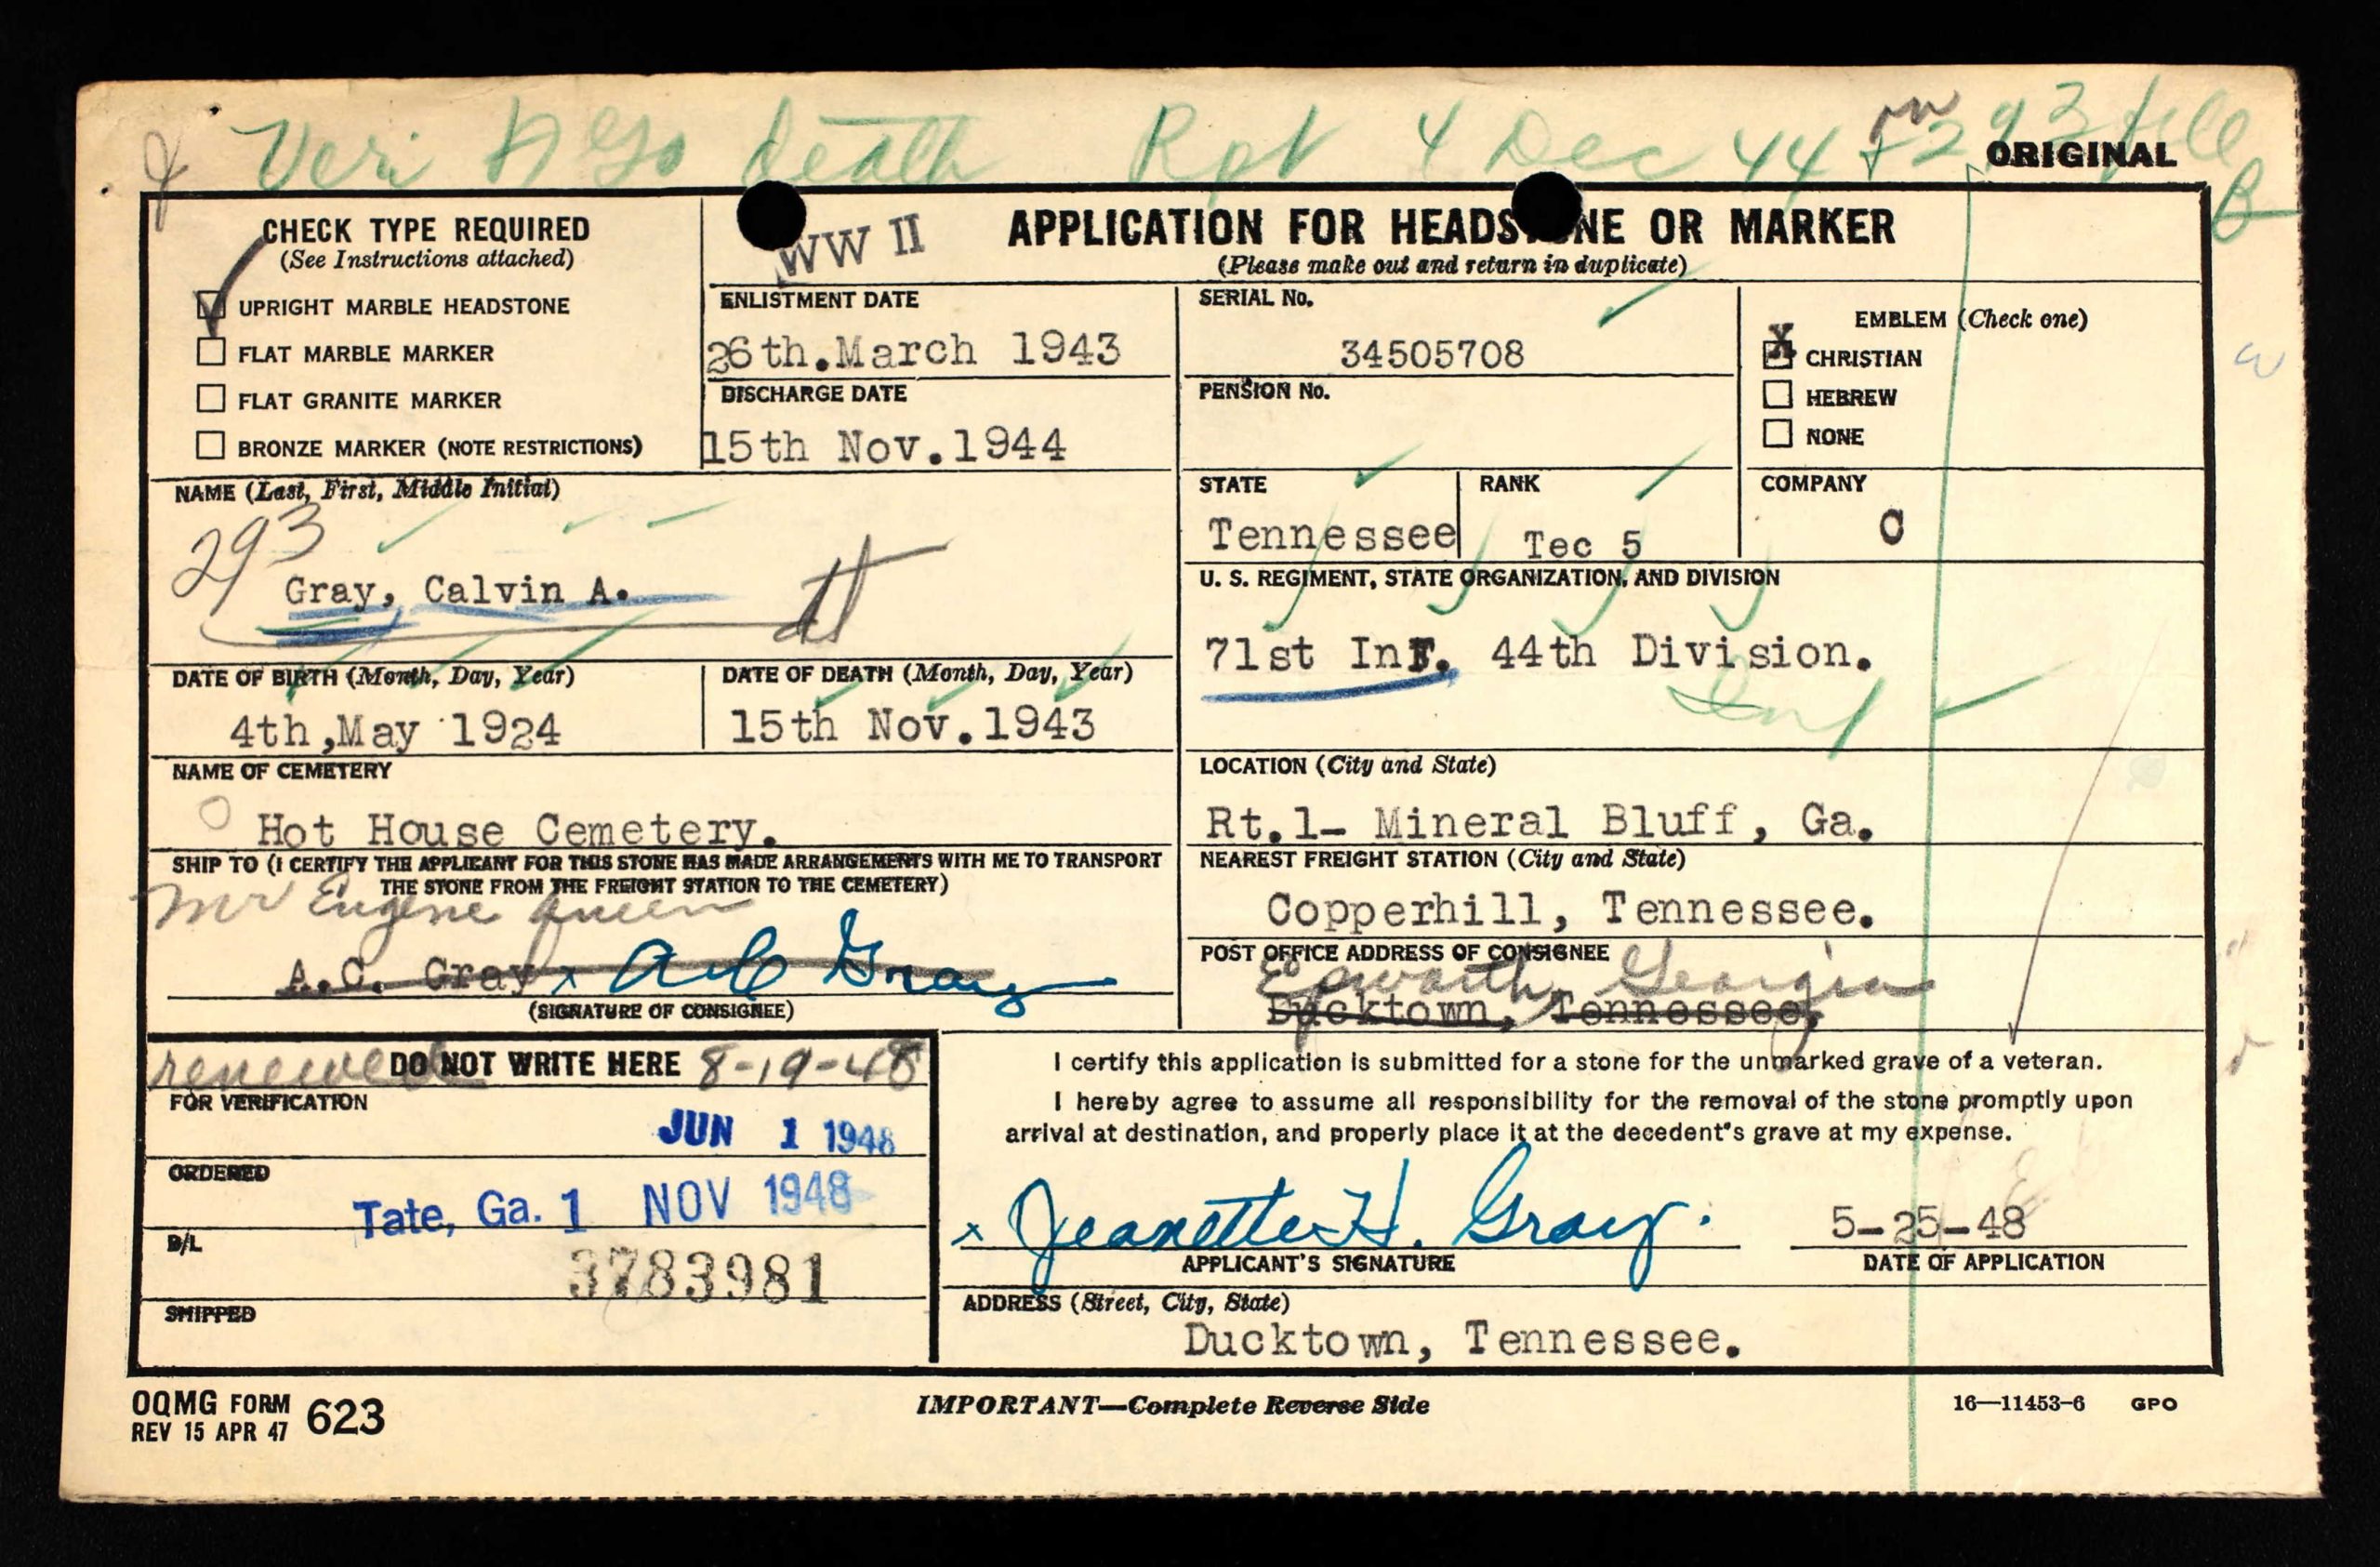 Veri death Rpt 4 Dec 44
ORIGINAL
CHECK TYPE REQUIRED
(See Instructions attached)
UPRIGHT MARBLE HEADSTONE
FLAT MARBLE MARKER
FLAT GRANITE MARKER
BRONZE MARKER (NOTE RESTRICTIONS)
WW II
APPLICATION FOR HEADSTONE OR MARKER
(Please make out and return in duplicate)
ENLISTMENT DATE
26th.March 1943
DISCHARGE DATE
15th Nov.1944
SERIAL No.
34505708
PENSION No.
EMBLEM (Check one)
X
CHRISTIAN
HEBREW
NONE
NAME (Last, First, Middle Initial)
293
Gray, Calvin A.
STATE
Tennessee
RANK
Tec 5
COMPANY
C
U. S. REGIMENT, STATE ORGANIZATION, AND DIVISION
71st Inf. 44th Division.
Inf
DATE OF BIRTH (Month, Day, Year)
4th,May 1924
DATE OF DEATH (Month, Day, Year)
15th Nov.1943
NAME OF CEMETERY
Hot House Cemetery.
LOCATION (City and State)
Rt.1- Mineral Bluff, Ga.
SHIP TO (I CERTIFY THE APPLICANT FOR THIS STONE HAS MADE ARRANGEMENTS WITH ME TO TRANSPORT
THE STONE FROM THE FREIGHT STATION TO THE CEMETERY)
Mr Eugene Queen
A.C. Gray x A C Gray
(SIGNATURE OF CONSIGNEE)
NEAREST FREIGHT STATION (City and State)
Copperhill, Tennessee.
POST OFFICE ADDRESS OF CONSIGNEE
Epworth, Georgia
Ducktown, Tennessee.
renewed DO NOT WRITE HERE 8-19-48
FOR VERIFICATION
JUN 1 1948
ORDERED
Tate, Ga. 1 NOV 1948
B/L
3783981
SHIPPED
I certify this application is submitted for a stone for the unmarked grave of a veteran.
I hereby agree to assume all responsibility for the removal of the stone promptly upon
arrival at destination, and properly place it at the decedent's grave at my expense.
x Jeanette H. Gray.
APPLICANT'S SIGNATURE
5-25-48
DATE OF APPLICATION
ADDRESS (Street, City, State)
Ducktown, Tennessee.
OQMG FORM 623
REV 15 APR 47
IMPORTANT—Complete Reverse Side
16—11453-6 GPO